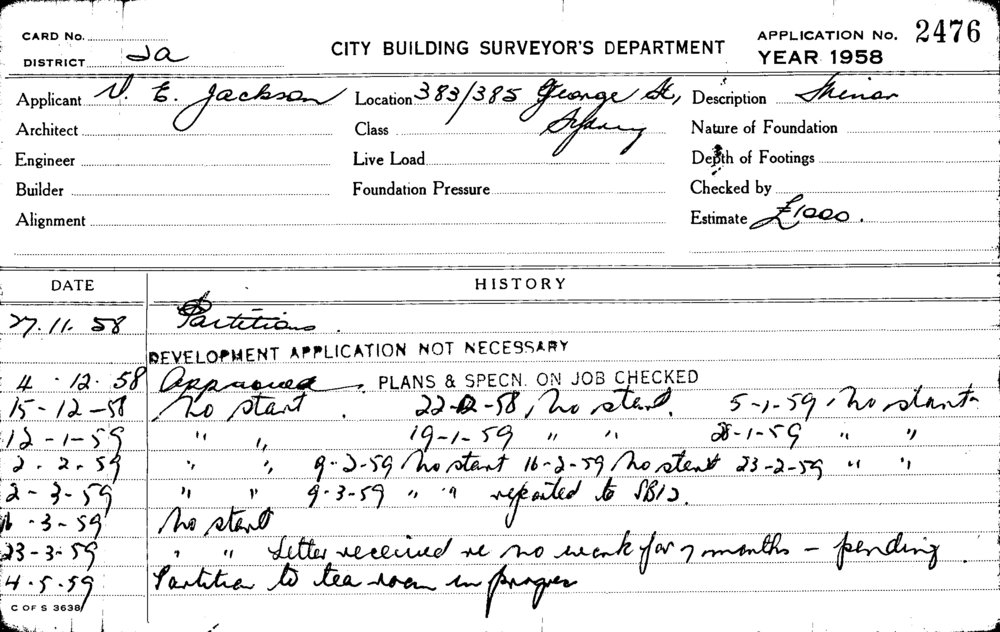 CARD No.
CITY BUILDING SURVEYOR'S DEPARTMENT
APPLICATION No. 2476
DISTRICT 2a
YEAR 1958
Applicant V. E. Jackson Location 383/385 George St, Sydney Description Minor
Architect Class Nature of Foundation
Engineer Live Load Depth of Footings
Builder Foundation Pressure Checked by
Alignment Estimate £1000.
DATE HISTORY
27.11.58 Partitions.
DEVELOPMENT APPLICATION NOT NECESSARY
4.12.58 Approved. PLANS & SPECN. ON JOB CHECKED
15-12-58 No start. 22-12-58, No start. 5-1-59, No start
12-1-59 " " 19-1-59 " " 28-1-59 " "
2-2-59 " " 9-2-59 No start 16-2-59 No start 23-2-59 " "
2-3-59 " " 9-3-59 " " reported to
16-3-59 No start
23-3-59 " " Letter received re no work for months - pending
4.5.59 Partition to tea room in progress
C OF S 3638